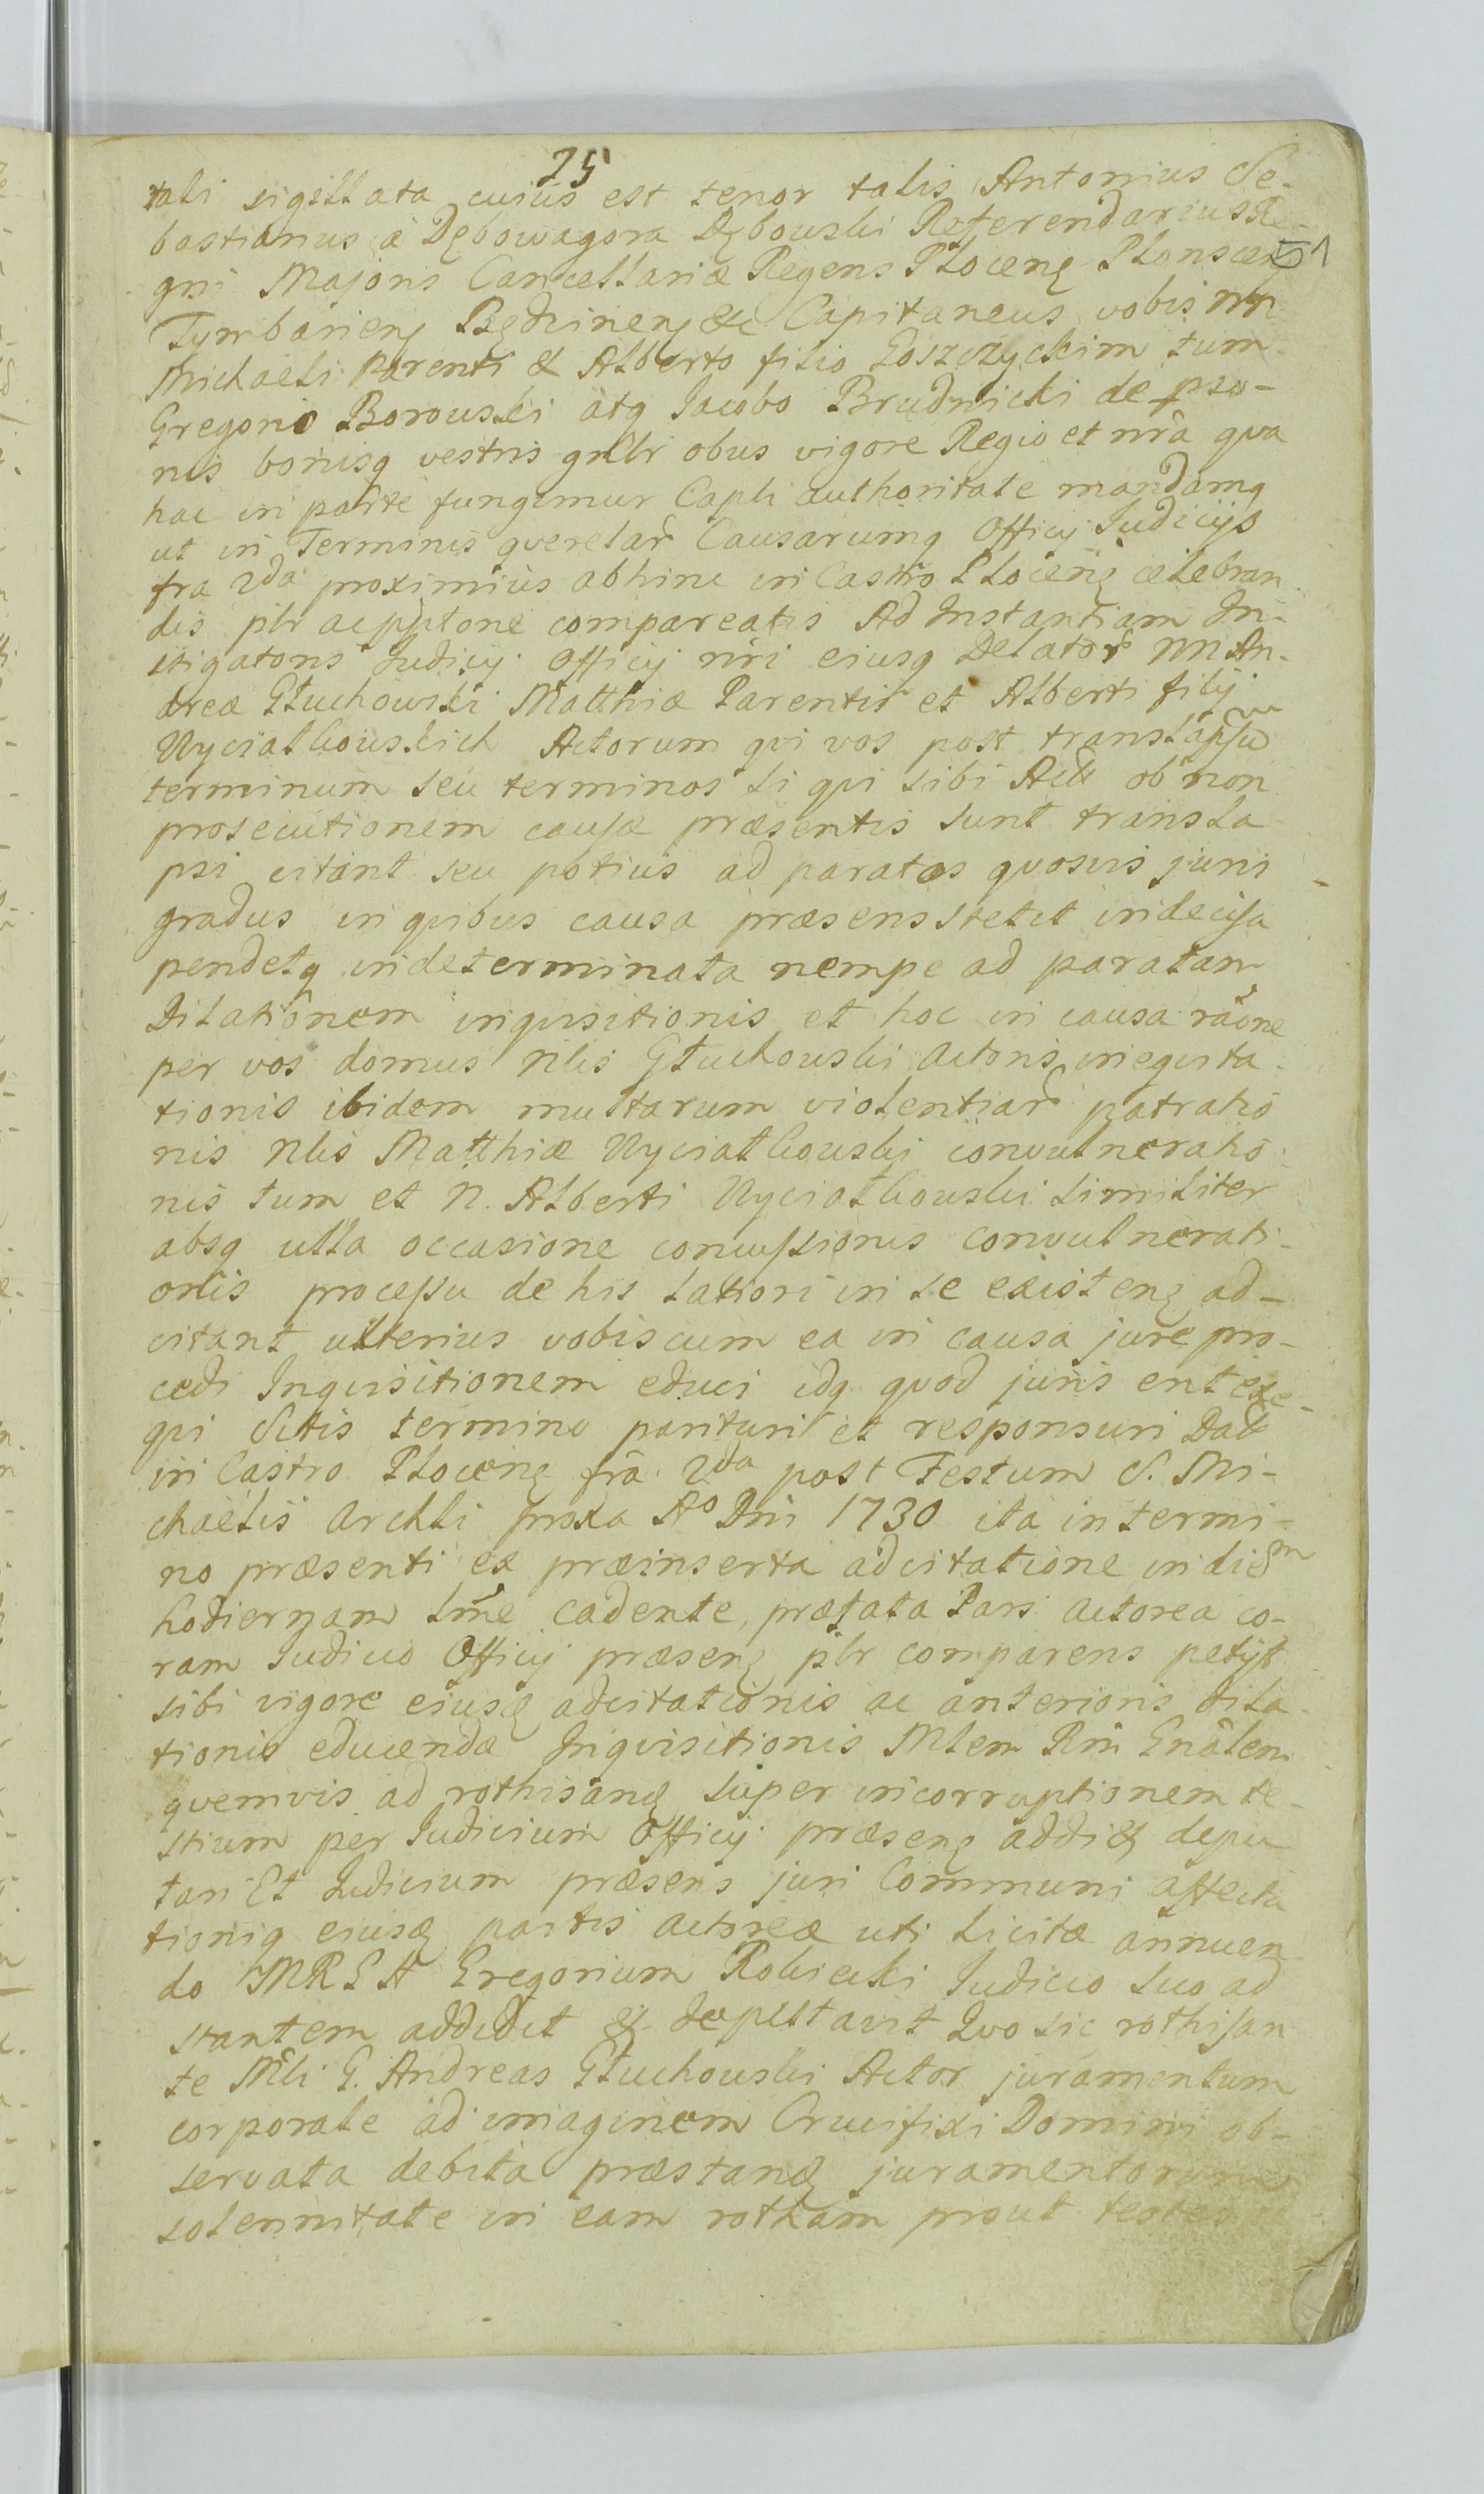 25
51
tali sigillata cuius est tenor talis Antonius Se-
bastianus a Dębowagora Dębouski Referendarius Re-
gni Majoris Cancellariæ Regens Płocenę Płonscenę
Tymbarienę Będzinenę &c Capitaneus vobis NN
Michaeli Parenti & Alberto filio Goszczyckim tum
Gregorio Borouski atq Jacobo Brudnicki de pso-
nis bonisq vestris gnlbr obus vigore Regio et nrâ qva
hac in parte fungimur Capli authoritate mandamq
ut in Terminis qverelar Causarumq Officij Judicijs
fra 2da proximius abhinc in Castro Płocenę celebran
dis plr ac pptone compareatis Ad Instantiam In-
stigatoris Judicij Officij nri eiusq Delator NN An-
dreæ Głuchowski Matthiæ Parentis et Alberti filij
Wyciałkouskich Actorum qvi vos post translapsu
terminum seu terminos si qvi sibi Act ob non
prosecutionem causæ præsentis sunt transla
psi citant seu potius ad paratos qvosvis juris
gradus in qvibus causa præsens stetit indecisa
pendetq indeterminata nempe ad paratam
Dilationem inqvisitionis et hoc in causa râone
per vos domus Nlis Głuchouski Actoris ineqvita
tionis ibidem multarum violentiar patratio
nis Nlis Matthiæ Wyciałkouski convulneratio
nis tum et N. Alberti Wyciałkouski similiter
absq ulla occasione concussionis convulnerati-
onis processu de his latiori in se existenę ad-
citant ulterius vobiscum ea in causa jure pro-
cedi Inqvisitionem educi idq qvod juris erit exe-
qvi Sitis termino parituri et responsuri Dat
in Castro Płocenę frâ 2da post Festum S. Mi-
chaëlis Archli proxa Ao Dni 1730 ita in termi-
no præsenti ex præinserta adcitatione in diem
hodiernam lme cadente, præfata Pars Actorea co-
ram Judicio Officij præsenę plr comparens petijt
sibi vigore eiusd adcitationis ac anterioris dila
tionis educendæ Inqvisitionis Mlem Rni Gnâlem
qvemvis ad rothisand super incorruptionem te-
stium per Judicium Officij præsenę addi & depu
tari Et Judicium præsens juri Communi affecta
tioniq eiusd partis Actoreæ uti licitæ annuen
do MRGN Gregorium Robiecki Judicio suo ad
stantem addidit & deputavit Qvo sic rothisan
te Mli G. Andreas Głuchouski Actor juramentum
corporale ad imaginem Crucifixi Domini ob-
servata debita præstand juramentorum
solennitate in eam rotham prout testes